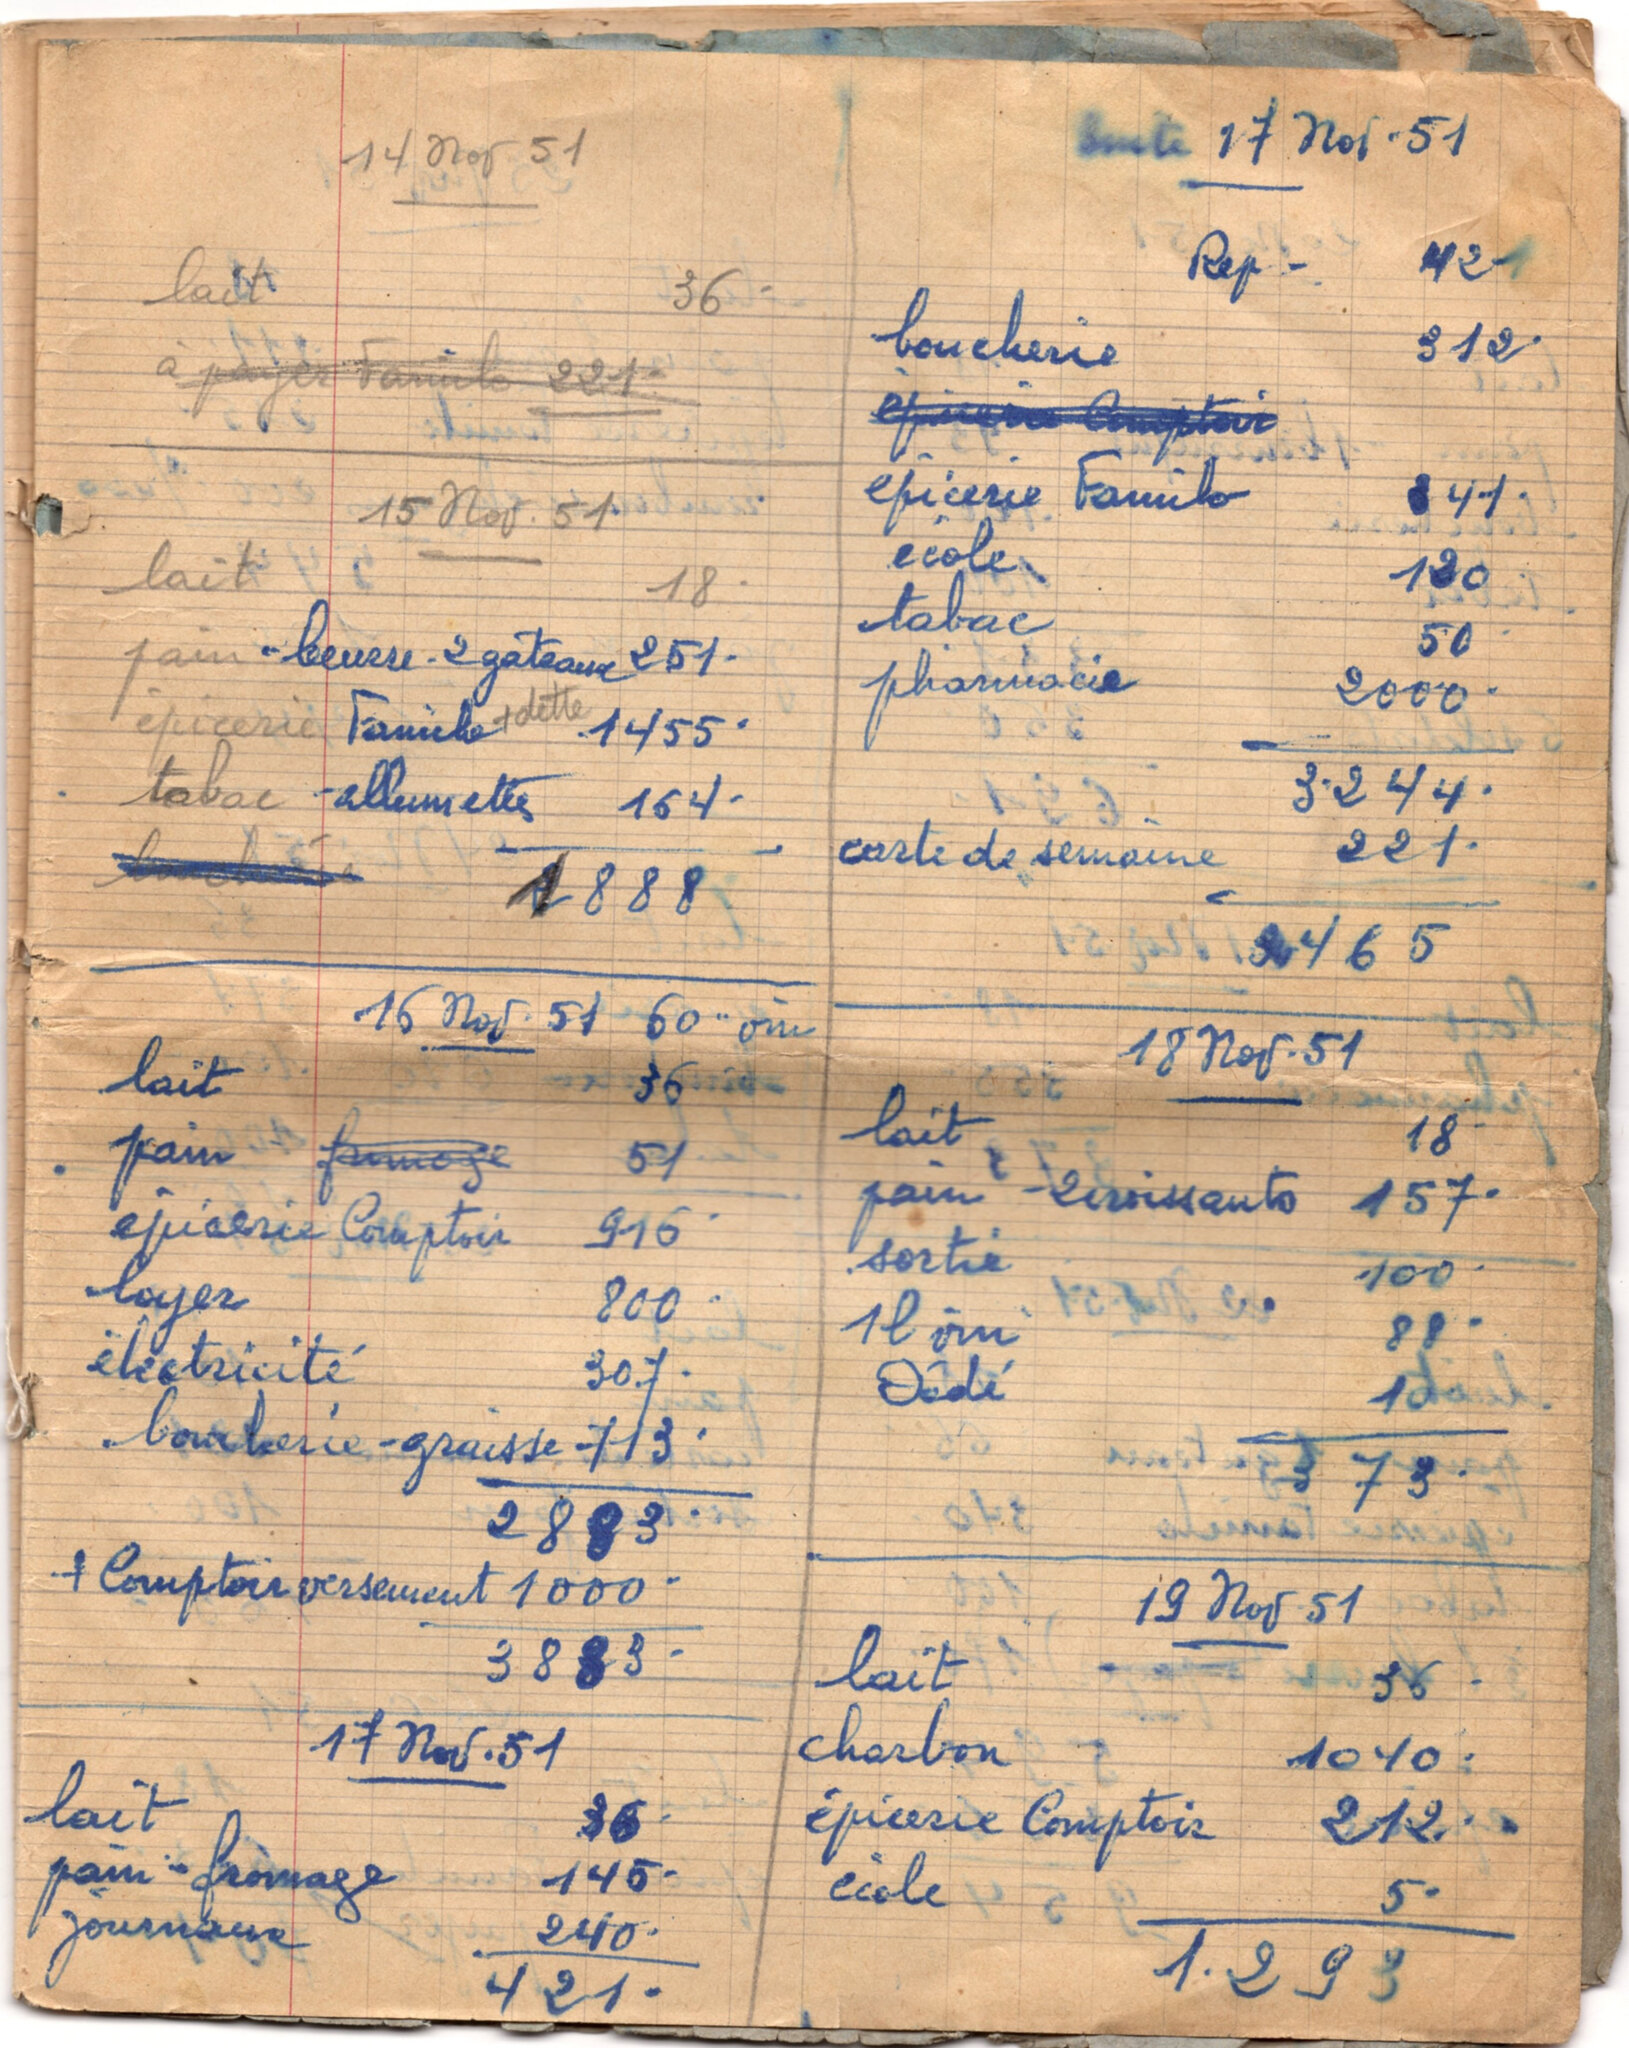 14 Nov 51
lait 36.
à payer Familo 221.
15 Nov. 51.
lait 18.
pain - beurre - 2 gâteaux 251.
épicerie Familo + dette 1455.
tabac - allumettes 164.
boucherie
1888
16 Nov. 51 60 - vin
lait 36
pain fromage 51
épicerie Comptoir 916.
loyer 800.
électricité 307.
boucherie - graisse - 713.
2883.
+ Comptoir versement 1000.
3883.
17 Nov. 51
lait 36.
pain - fromage 145.
journaux 240.
421.
Suite 17 Nov. 51
Rep - 421
boucherie 312.
épicerie Comptoir
épicerie Familo 341.
école 120
tabac 50
pharmacie 2000.
3.244.
carte de semaine 221.
3465
18 Nov. 51
lait 18
pain - 2 croissants 157.
sortie 100.
1 l vin 88.
Dédé 10
373.
19 Nov. 51
lait 36.
charbon 1040.
épicerie Comptoir 212.
école 5.
1.293